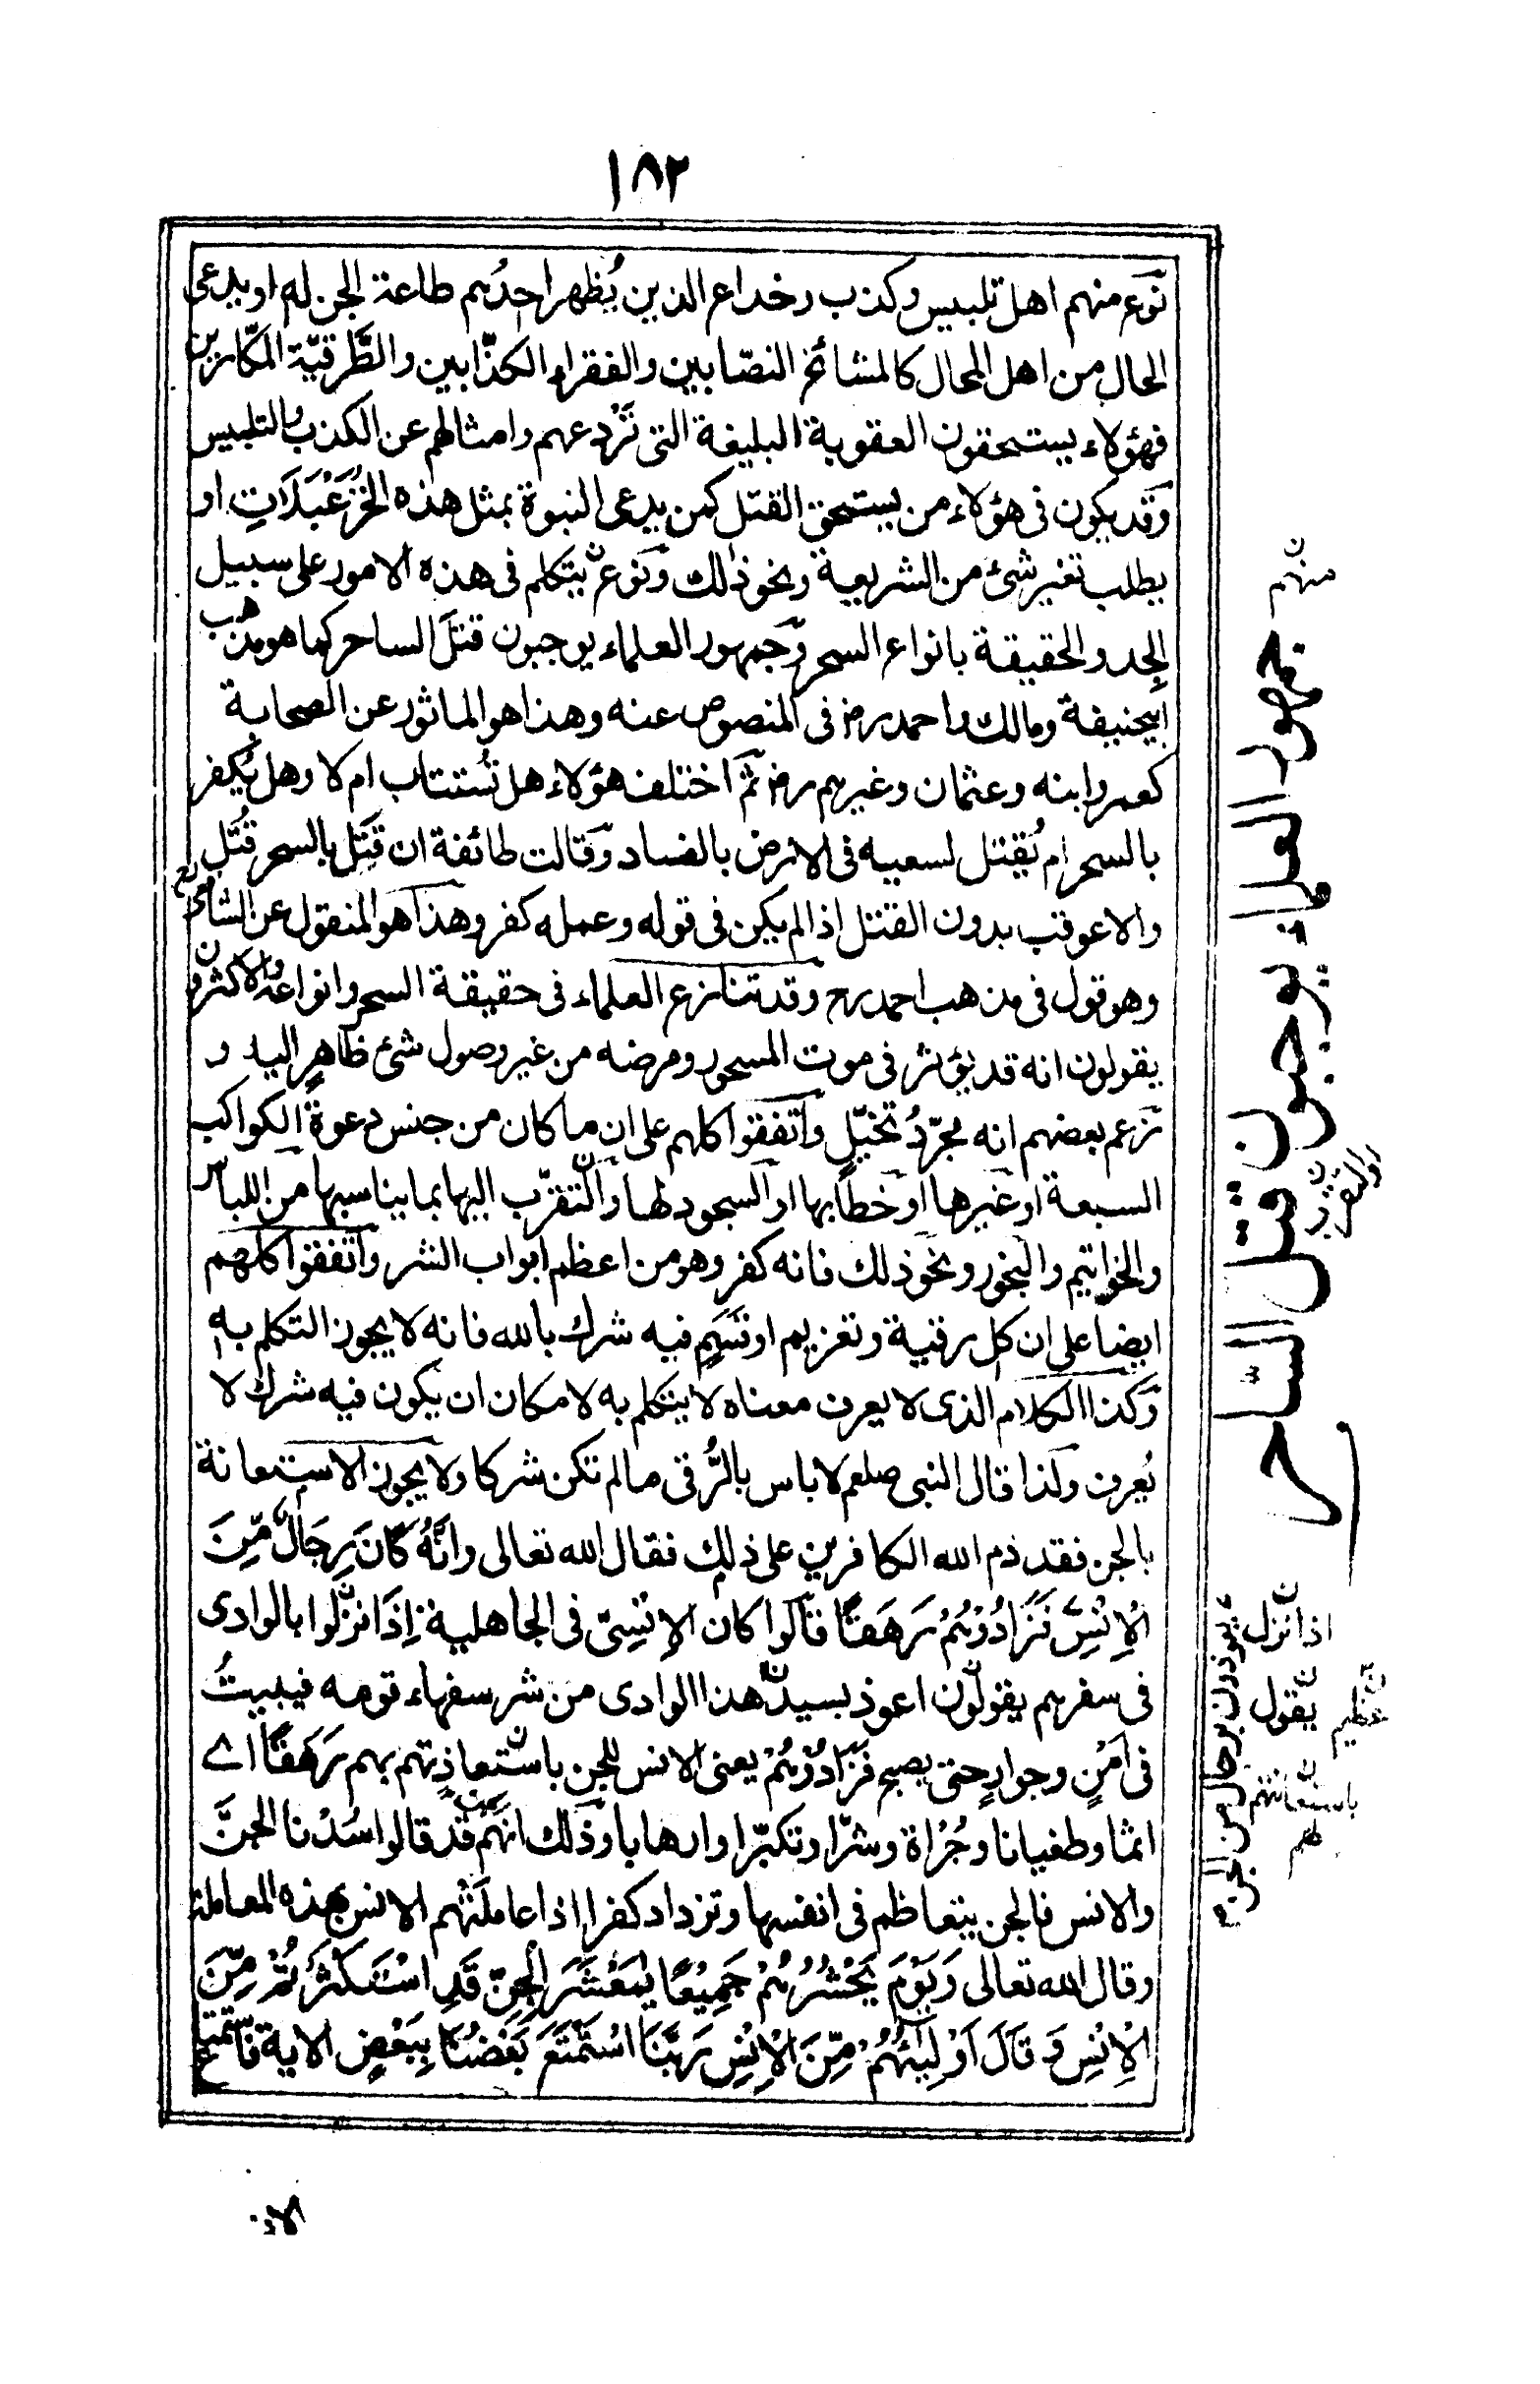 ١٨٢
نوع منهم اهل تلبيس وكذب وخداع الذين يُظهر احدُهم طاعة الجن له او يدعى
الحال من اهل المحال كالمشائخ النصّابين والفقراء الكذّابين والطُّرقيّة المكّارين
فهؤلاء يستحقون العقوبة البليغة التى تَرْدعهم وامثالهم عن الكذب والتلبيس
وقد يكون فى هؤلاء من يستحق القتل كمن يدعى النبوة بمثل هذه الخُزَعْبَلَاتِ او
يطلب تغير شئ من الشريعة ونحو ذلك ونوع يتكلم فى هذه الامور على سبيل
الجِد والحقيقة بانواع السحر وجمهور العلماء يوجبون قتلَ الساحر كما هو مذهب
ابيحنيفة ومالك واحمد رض فى المنصوص عنه وهذا هو الماثور عن الصحابة
كعمر وابنه وعثمان وغيرهم رض ثم اختلف هؤلاء هل تُستتاب ام لا وهل يُكفر
بالسحر ام يُقتل لسعيه فى الارض بالفساد وقالت طائفة ان قَتَل بالسحر قُتل
والا عوقب بدون القتل اذا لم يكن فى قوله وعمله كفر وهذا هو المنقول عن الشافعى رح
وهو قول فى مذهب احمد رح وقد تنازع العلماء فى حقيقة السحر وانواعه والاكثرون
يقولون انه قد يؤثر فى موت المسحور ومرضه من غير وصول شئ ظاهرٍ اليه و
زعم بعضهم انه مجرّدُ تخيّل واتفقوا كلهم على ان ما كان من جنس دعوة الكواكب
السبعة او غيرها او خطابها او السجود لها والتقرّب اليها بما يناسبها من اللباس
والخواتيم والبخور ونحو ذلك فانه كفر وهو من اعظم ابواب الشر واتفقوا كلهم
ايضا على ان كل رقية وتعزيم او قسَمٍ فيه شرك بالله فانه لا يجوز التكلم به
وكذا الكلام الذى لا يعرف معناه لا يتكلم به لامكان ان يكون فيه شرك لا
يُعرف ولذا قال النبى صلعم لا باس بالرُّقى مالم تكن شركا ولا يجوز الاستعانة
بالجن فقد ذم الله الكافرين على ذلك فقال الله تعالى وانَّهُ كَانَ رِجَالٌ مِّنَ
الْاِنْسِ فَزَادُوْهُمْ رَهَقًا قالوا كان الاِنْسِىّ فى الجاهلية اِذَا نزلوا بالوادى
فى سفرهم يقولون اعوذ بسيد هذا الوادى من شر سفهاء قومه فيبيتُ
فى امْنٍ وجوارٍ حتى يصبح فَزَادُوْهُمْ يعنى الانس للجن باستعاذتهم بهم رَهَقًا اے
اثما وطغيانا وجُرْاة وشرّا وتكبّرا وارهابا وذلك انهم قد قالوا سُدْنا الجنَّ
والانس فالجن يتعاظم فى انفسها وتزداد كفرا اذا عاملَتْهم الانس بهذه المعاملة
وقال الله تعالى وَيَوْمَ يَحْشُرُهُمْ جَمِيْعًا يٰمَعْشَرَ الْجِنِّ قَدِ اسْتَكْثَرْتُمْ مِّنَ
الْاِنْسِ وَقَالَ اَوْلِيٰٓئُهُمْ مِّنَ الْاِنْسِ رَبَّنَا اسْتَمْتَعَ بَعْضُنَا بِبَعْضٍ الاية فاستمتاع
منهم
جمهور العلماء يوجبون قتل الساحر
يعوذون برجال من الجن
اذا نزل
يقول
عظيم
باستعانتهم
لهم
الانس